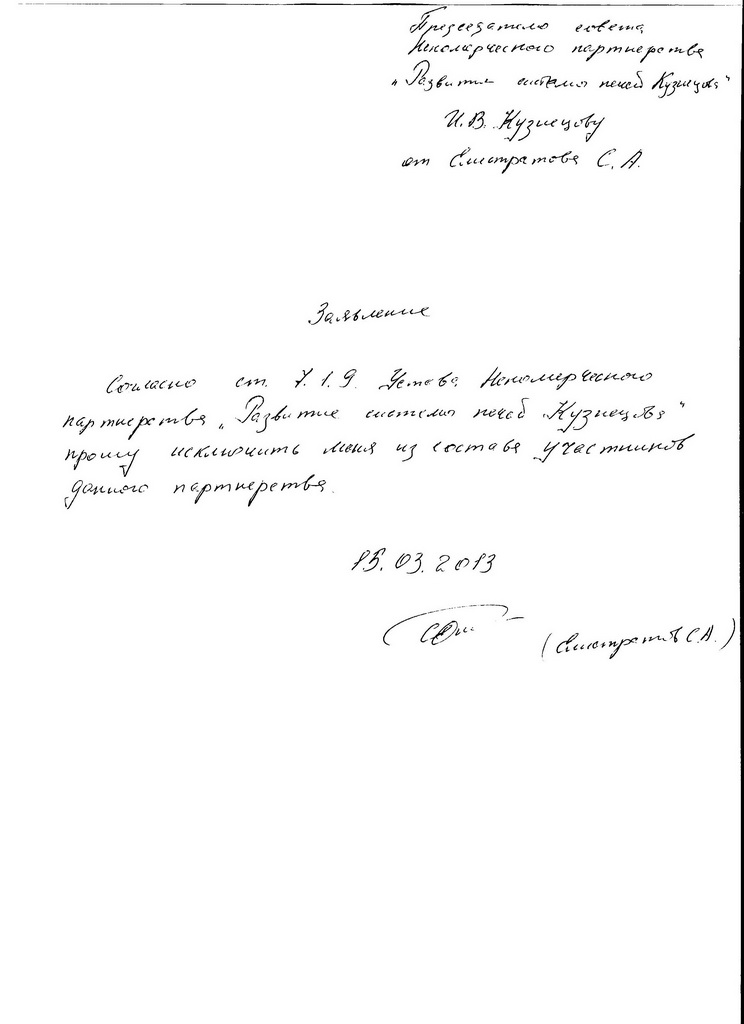 Председателю совета
Некоммерческого партнерства
"Развитие системы печей Кузнецова"
И.В. Кузнецову
от Елистратова С.А.
Заявление
Согласно ст. 7.1.9. Устава Некоммерческого
партнерства "Развитие системы печей Кузнецова"
прошу исключить меня из состава участников
данного партнерства.
15.03.2013
(Елистратов С.А.)